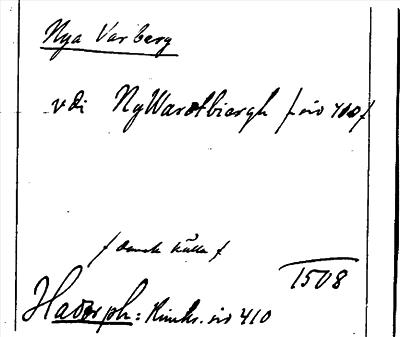 Nya Varberg
vdi NyWardbiergh / sid 410 /
/ dansk källa /
1508
Hadorph: Rimkr. sid 410